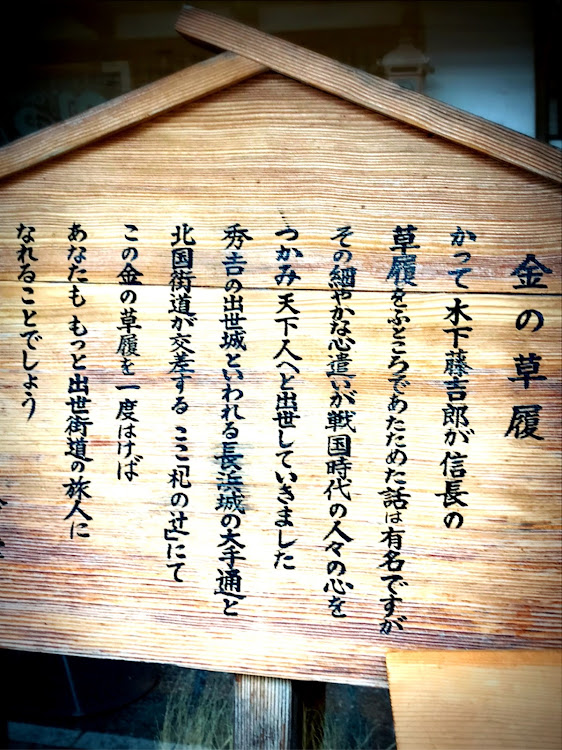 金の草履
かって 木下藤吉郎が 信長の
草履をふところであたためた話は有名ですが
その細やかな心遣いが戦国時代の人々の心を
つかみ 天下人へと出世していきました
秀吉の出世城といわれる長浜城の大手通と
北国街道が交差する ここ「札の辻」にて
この金の草履を 一度はけば
あなたも もっと出世街道の旅人に
なれることでしょう